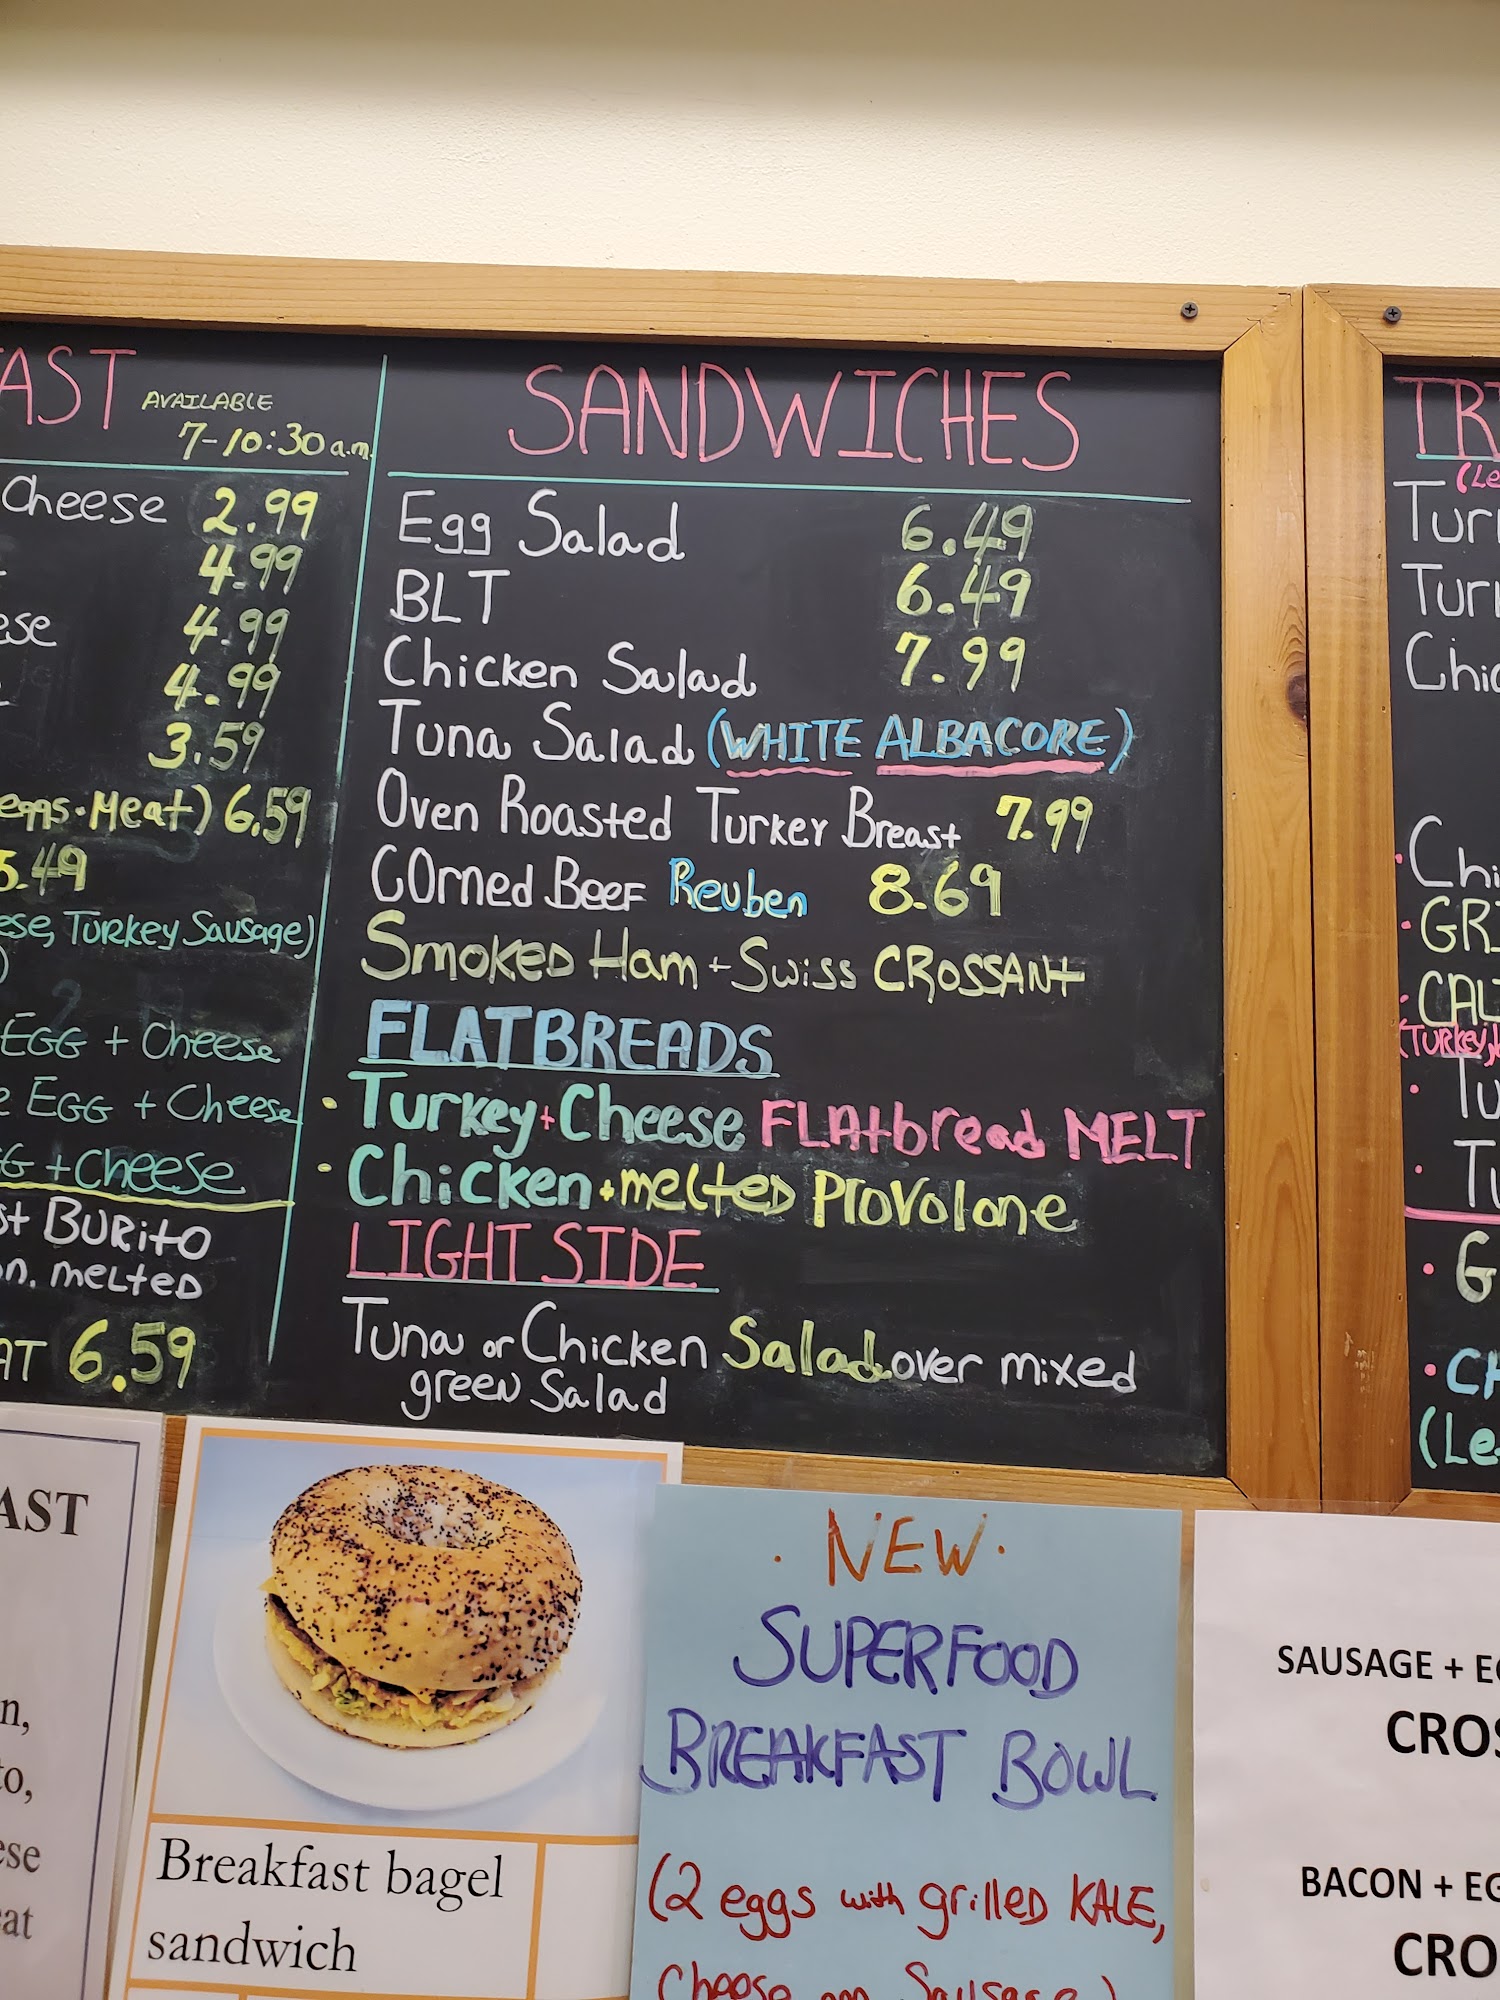 AST AVAILABLE
7-10:30 a.m.
Cheese 2.99
4.99
ese 4.99
4.99
3.59
eggs·Meat) 6.59
5.49
ese, Turkey Sausage)
)
EGG + Cheese
e EGG + Cheese
GG + Cheese
st BURitO
on. melted
AT 6.59
SANDWICHES
Egg Salad 6.49
BLT 6.49
Chicken Salad 7.99
Tuna Salad (WHITE ALBACORE)
Oven Roasted Turkey Breast 7.99
Corned Beef Reuben 8.69
Smoked Ham + Swiss CROSSANt
FLATBREADS
· Turkey + Cheese FLAtbread MELT
· Chicken + melted Provolone
LIGHT SIDE
Tuna or Chicken Salad over mixed
green Salad
(Le
Tur
Tur
Chic
· Chi
· GRI
· CAL
(Turkey,
· Tu
· Tu
· G
· CH
(Le
AST
n,
to,
ese
eat
Breakfast bagel
sandwich
· NEW ·
SUPERFOOD
BREAKFAST BOWL
(2 eggs with grilled KALE,
Cheese Sausage)
SAUSAGE + EG
CROS
BACON + EG
CRO